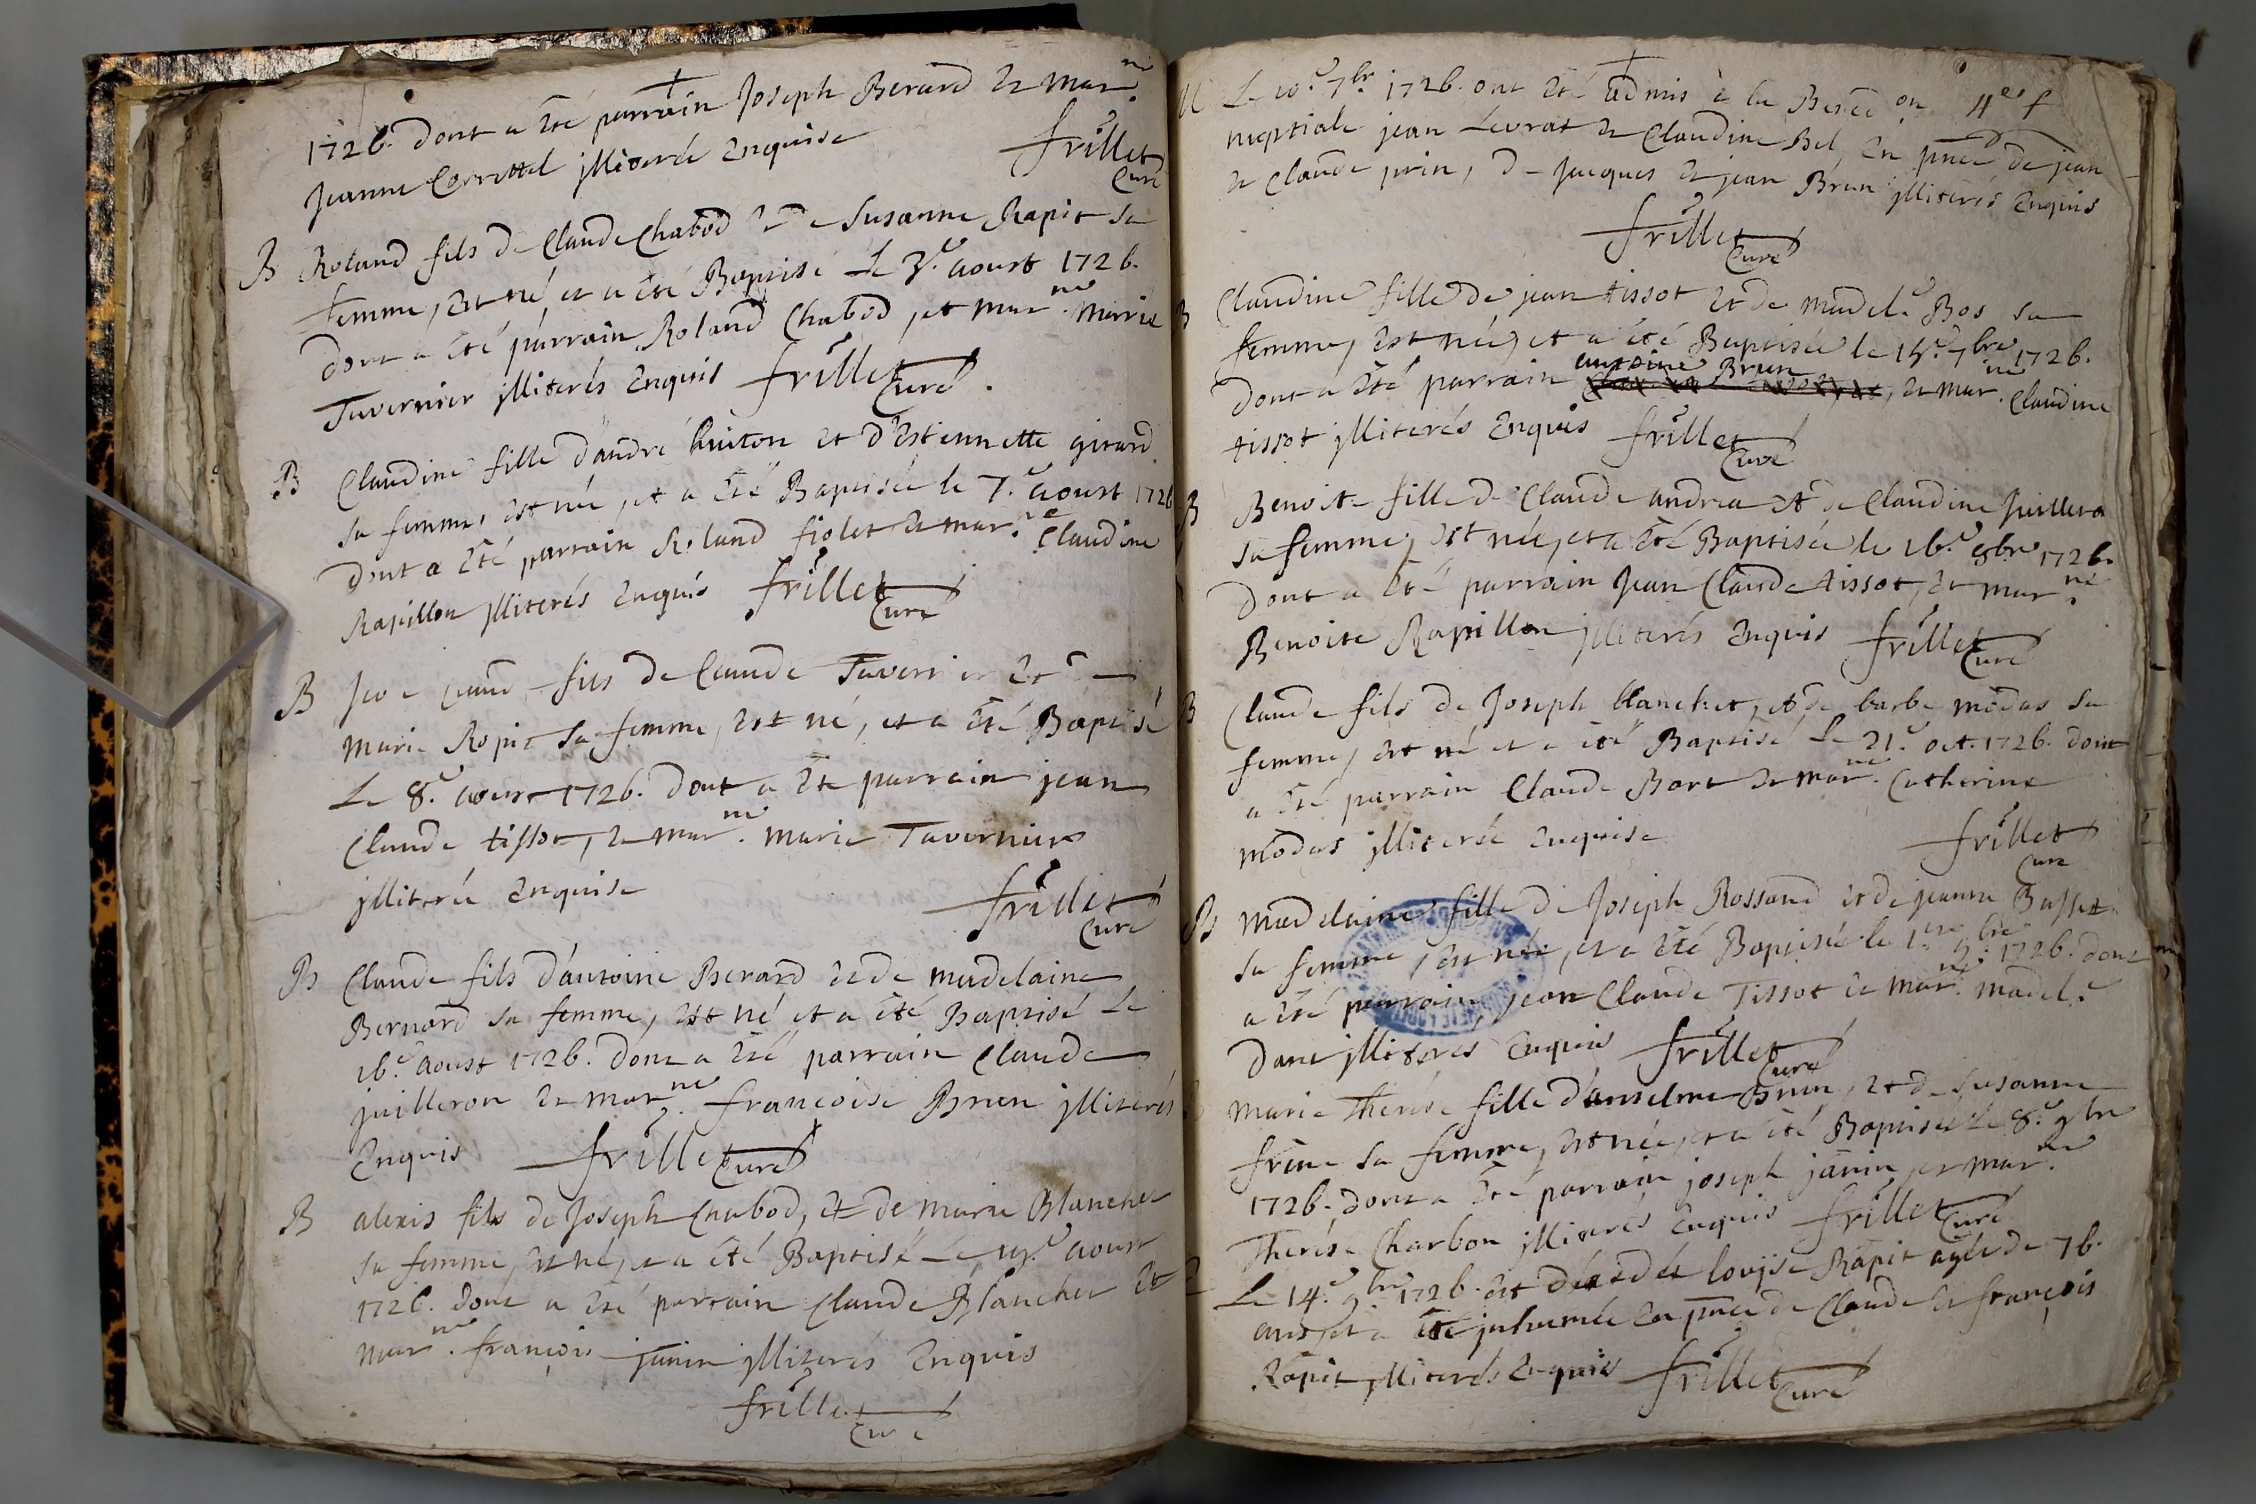 1726. dont a été parrain Joseph Berard et mar.ne
Jeanne Correttel jlliterée Enquise
frillet
Curé
B Roland fils de Claude Chabod et de Susanne Rapit sa
femme, est né, et a été Baptisé Le 3.e aoust 1726.
dont a été parrain Roland Chabod, et mar.ne Marie
Tavernier jlliterés Enquis frillet
Curé.
B Claudine fille d'andré huiton et d'Estiennette girard
sa femme, est née, et a été Baptisée le 7.e aoust 1726
dont a été parrain Roland fiolet et mar.e Claudine
Rapillon jlliterés Enquis frillet
Curé
B fils de Claude Tavernier et de
Marie Rapit sa femme, est né, et a été Baptisé
Le 8.e aoust 1726. dont a été parrain jean
Claude tissot, et mar.ne Marie Tavernier
jlliterée Enquise
frillet
Curé
B Claude fils d'antoine Berard et de madelaine
Bernard sa femme, est né et a été Baptisé Le
16.e Aoust 1726. dont a été parrain Claude
juilleron et mar.ne françoise Brun jlliterés
Enquis frillet Curé
B alexis fils de Joseph Chabod, et de marie Blanchet
sa femme, est né, et a été Baptisé Le aoust
1726. dont a été parrain Claude Blanchet et
mar.ne françoise janin jlliterés Enquis
frillet
Curé
M Le 7br. 1726. ont été admis à la Bened.on
nuptiale jean Levrat et Claudine Bel, en pnce de jean
et Claude prin, de jacques et jean Brun jlliterés Enquis
frillet
Curé
B Claudine fille de jean tissot et de madel.e Bos sa
femme, est née, et a été Baptisée le 7bre 1726.
antoine Brun
dont a été parrain , et mar.ne Claudine
tissot jlliterés Enquis frillet
Curé
B Benoite fille de Claude andrea et de Claudine juilleron
sa femme, est née, et a été Baptisée le 16.e 8bre 1726.
dont a été parrain Jean Claude tissot, et mar.ne
Benoite Rapillon jlliterés Enquis frillet
Curé
B Claude fils de Joseph blanchet, et de barbe modas sa
femme, est né et a été Baptisé Le 21.e oct. 1726. dont
a été parrain Claude Bort et mar.ne Catherine
modas jlliterée Enquise frillet
Curé
B Madelaine fille de Joseph Rossand et de jeanne Busset
sa femme, est née, et a été Baptisée le 1.er 9.bre 1726. dont
a été parrain jean Claude Tissot et mar.ne madel.e
Dant jlliterés Enquis frillet
Curé
Marie Therése fille d'anselme Brun, et de Susanne
frène sa femme, est née, et a été Baptisée Le 8.e 9bre
1726. dont a été parrain joseph janin, et mar.ne
Therése Charbon jlliterés Enquis frillet
Curé
Le 14.e 9bre 1726. est décédée louyse Rapit agée de 76.
ans, et a été inhumée en pnce de Claude et françois
Rapit jlliterés Enquis frillet
Curé